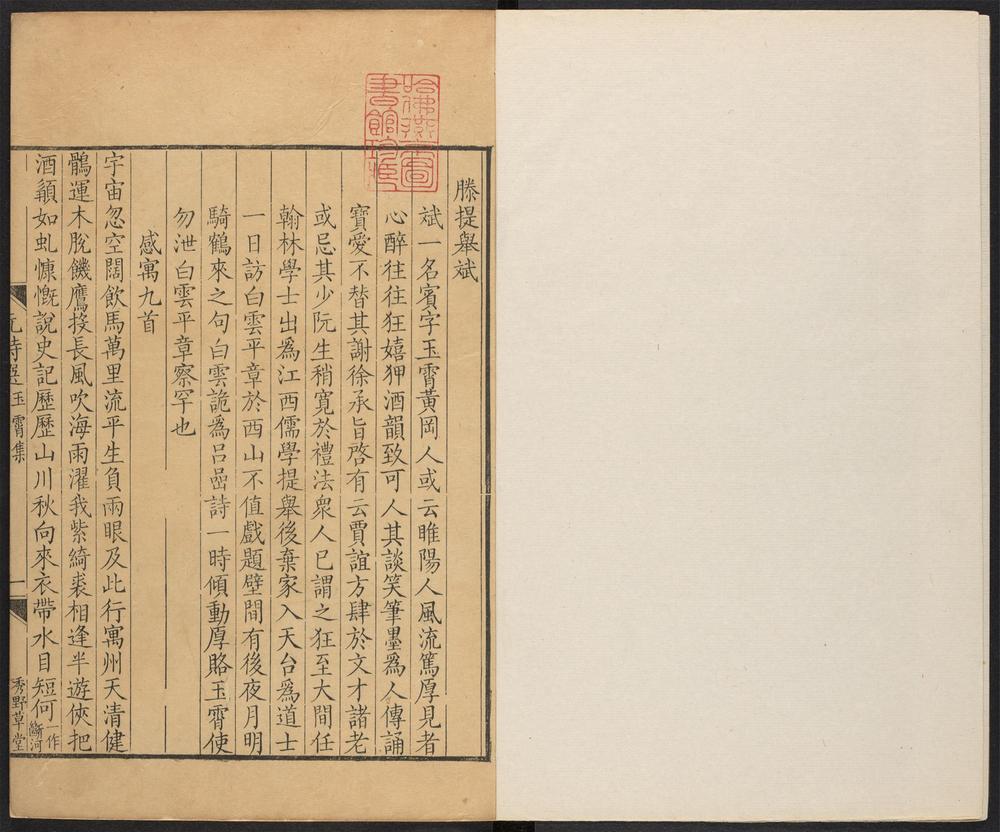 滕提舉斌
斌一名賓字玉霄黃岡人或云睢陽人風流篤厚見者
心醉往往狂嬉狎酒韻致可人其談笑筆墨爲人傳誦
寶愛不替其謝徐承旨啓有云賈誼方肆於文才諸老
或忌其少阮生稍寬於禮法衆人已謂之狂至大間任
翰林學士出爲江西儒學提舉後棄家入天台爲道士
一日訪白雲平章於西山不值戲題壁間有後夜月明
騎鶴來之句白雲詭爲呂嵒詩一時傾動厚賂玉霄使
勿泄白雲平章察罕也
感寓九首
宇宙忽空闊飲馬萬里流平生負兩眼及此行寓州天清健
鶻運木脫饑鷹投長風吹海雨濯我紫綺裘相逢半遊俠把
酒顲如虬慷慨說史記歷歷山川秋向來衣帶水目短何
一作
斷河
元詩選 玉霄集
一
秀野草堂
哈佛燕京圖
書館珍藏